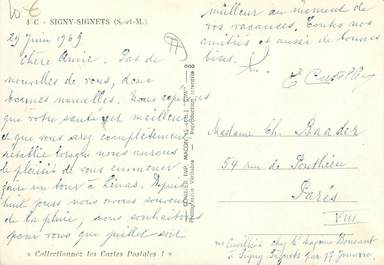 10 €
1 C - SIGNY-SIGNETS (S.-et-M.)
29 juin 1969
Chère Amie. Pas de
nouvelles de vous, donc
bonnes nouvelles. Nous espérons
que votre santé est meilleure
et que vous serez complètement
rétablie lorsque nous aurons
le plaisir de vous emmener
faire un tour à Depuis
huit jours nous avons souvent
de la pluie, nous souhaitons
pour vous que juillet soit
« Collectionnez les Cartes Postales ! »
COMBIER IMP. MACON
Reproduction interdite
meilleur au moment de
vos vacances. Toutes nos
amitiés et aussi de bonnes
bises.
Madame Ch. Baader
54 rue de Ponthieu
Paris
VIII
chez
à Signy Signets par 77 Jouarre